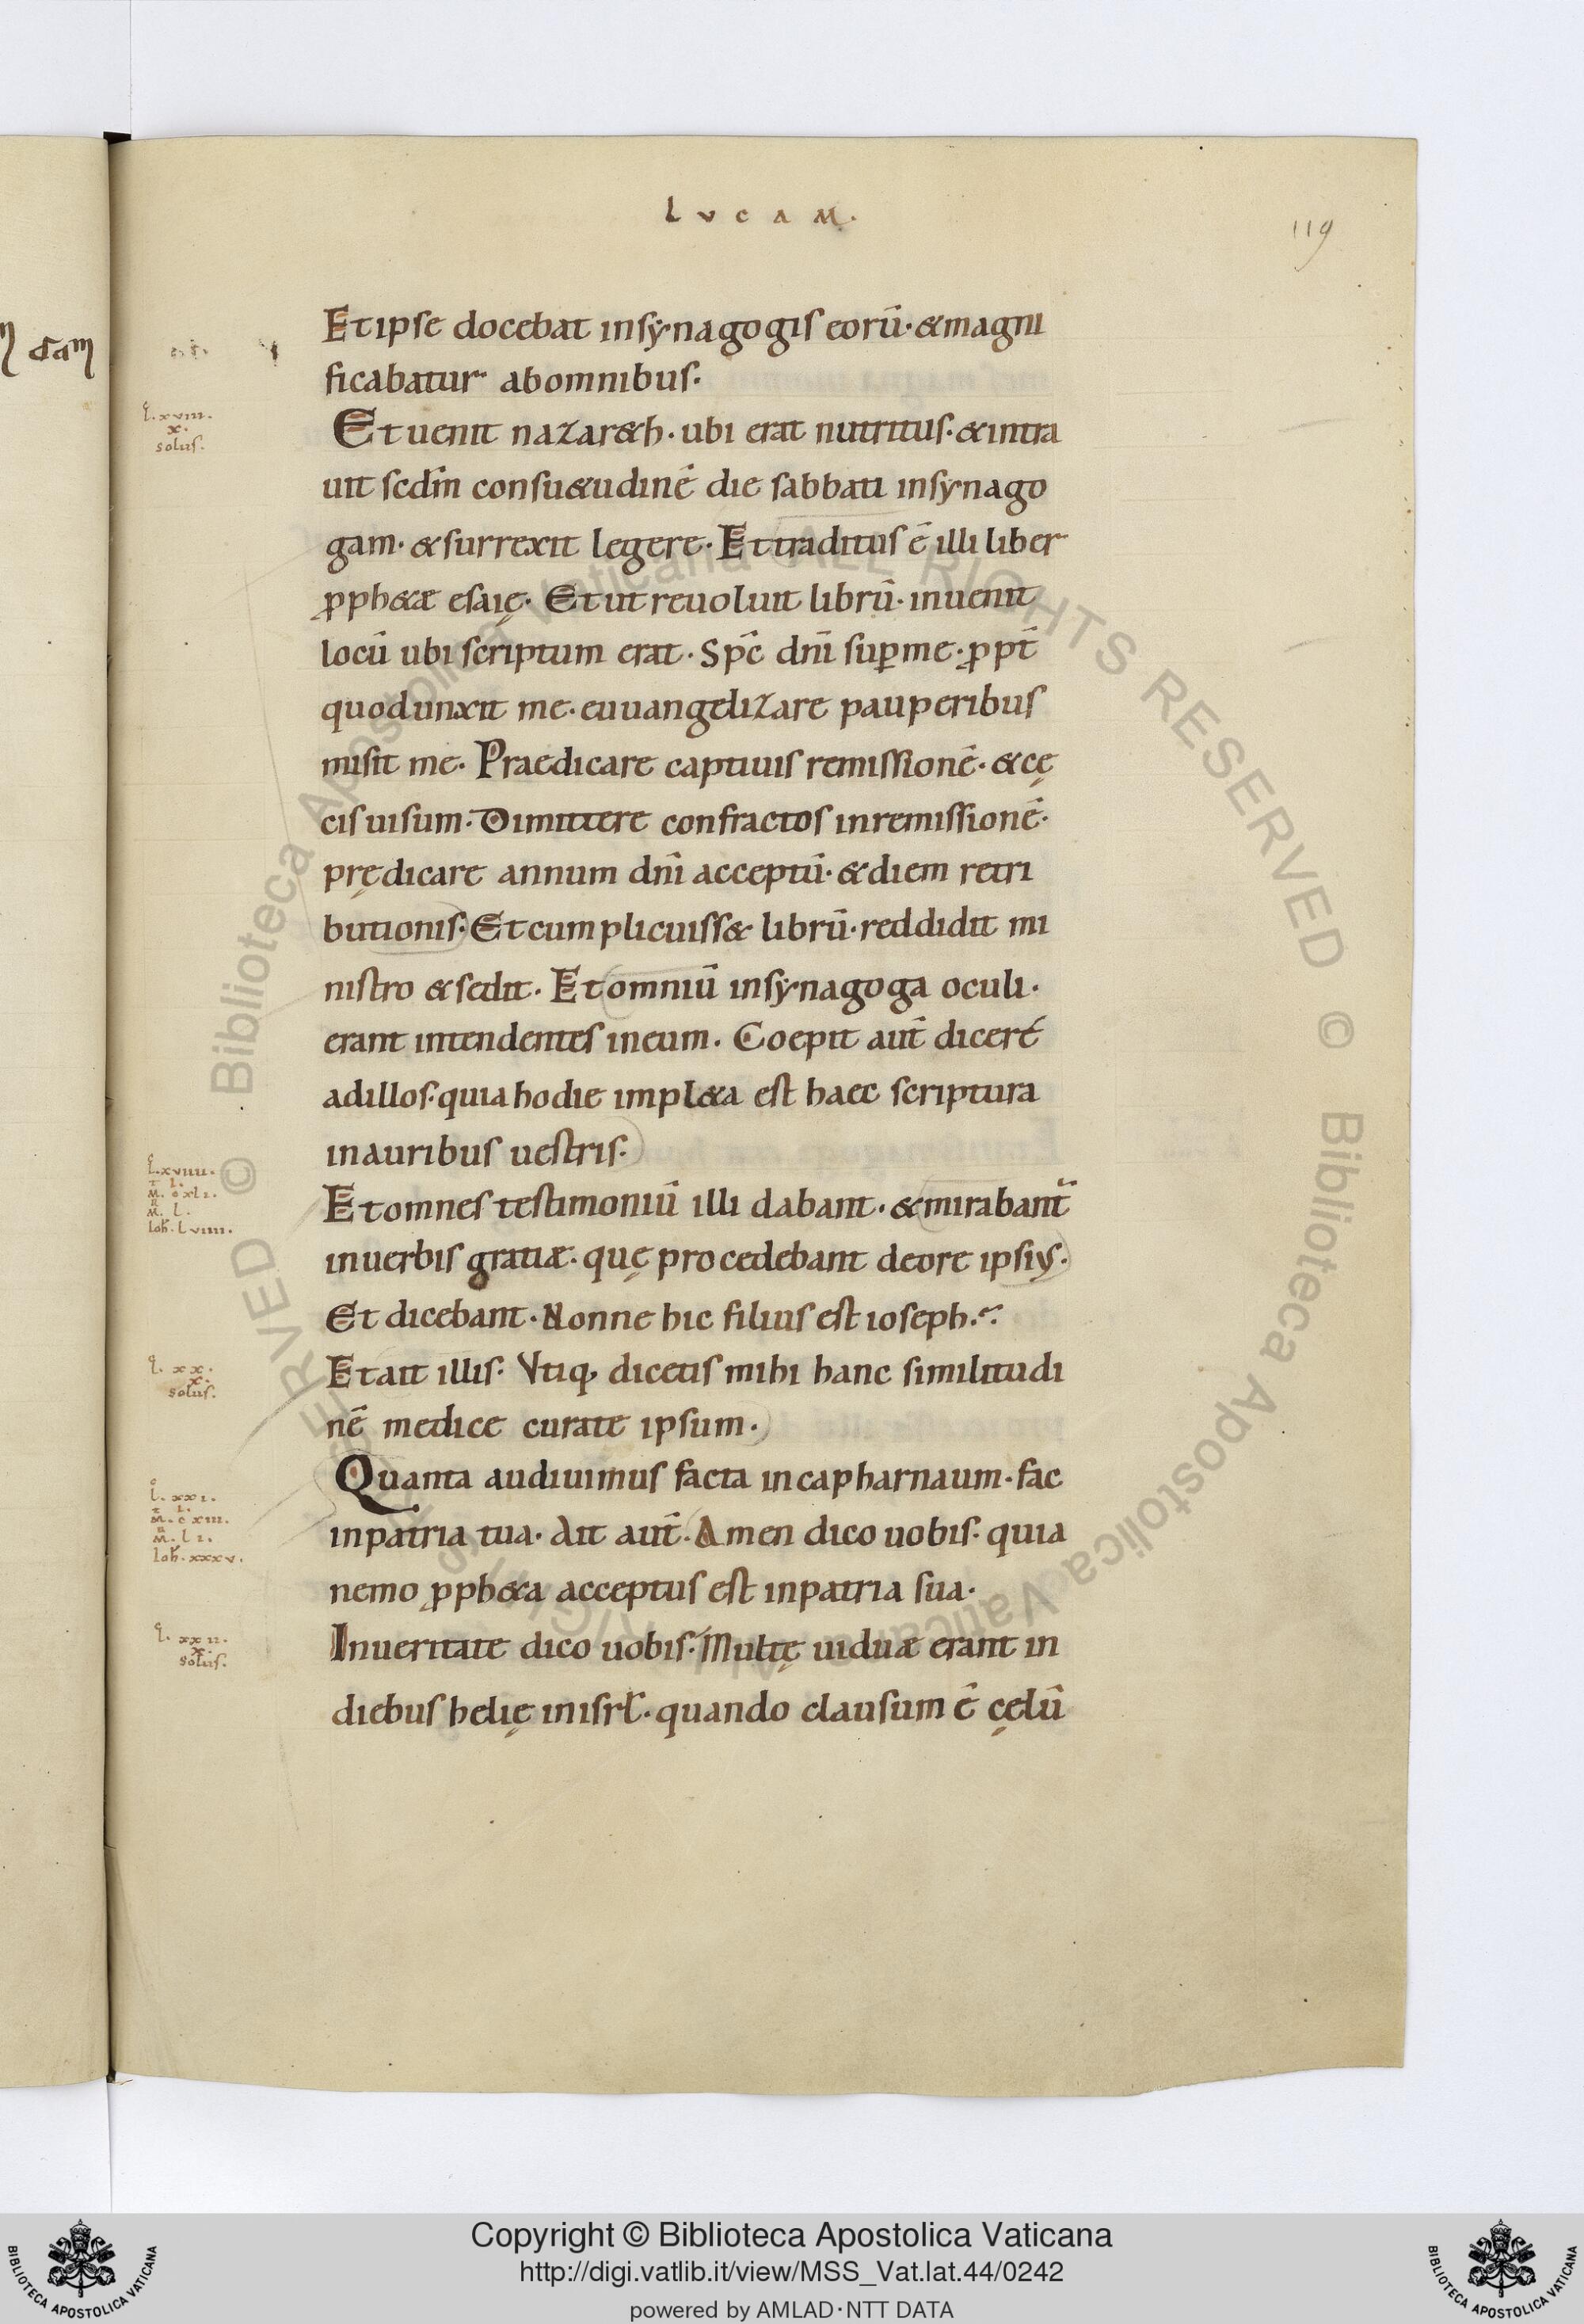 LVCAM.
119
Et ipse docebat in synagogis eorū· & magni
ficabatur ab omnibus·
Et uenit nazar&h· ubi erat nutritus· & intra
uit scdm̄ consu&udinē die sabbati in synago
gam· & surrexit legere· Et traditus ē illi liber
ꝓph&æ esaię· Et ut reuoluit librū· inuenit
locū ubi scriptum erat· Spc̄ dnī suꝑ me· ꝓpt̄
quod unxit me· euuangelizare pauperibus
misit me· Praedicare captiuis remissionē· & cę
cis uisum· Dimittere confractos in remissionē·
prędicare annum dnī acceptū· & diem retri
butionis· Et cum plicuiss& librū· reddidit mi
nistro & sedit· Et omniū in synagoga oculi·
erant intendentes in eum· Coepit aut̄ dicere
ad illos· quia hodie impl&a est haec scriptura
in auribus uestris·
Et omnes testimoniū illi dabant· & mirabant̄
in uerbis gratiæ· quę procedebant de ore ipsius·
Et dicebant· Nonne hic filius est ioseph·
Et ait illis· Vtiq; dicetis mihi hanc similitudi
nē medice cura te ipsum·
Quanta audiuimus facta in capharnaum· fac
in patria tua· Ait aut̄· Amen dico uobis· quia
nemo ꝓph&a acceptus est in patria sua·
In ueritate dico uobis· Multę uiduæ erant in
diebus helię in isrl̄· quando clausum ē cęlū
l. xviii.
x.
solus.
l. xviiii.
i.
M. cxli.
M. l.
Ioh. lviiii.
l. xx.
x.
solus.
l. xxi.
i.
M. cxlii.
M. li.
Ioh. xxxv.
l. xxii.
x.
solus.
Copyright © Biblioteca Apostolica Vaticana
http://digi.vatlib.it/view/MSS_Vat.lat.44/0242
powered by AMLAD·NTT DATA
BIBLIOTECA APOSTOLICA VATICANA
BIBLIOTECA APOSTOLICA VATICANA